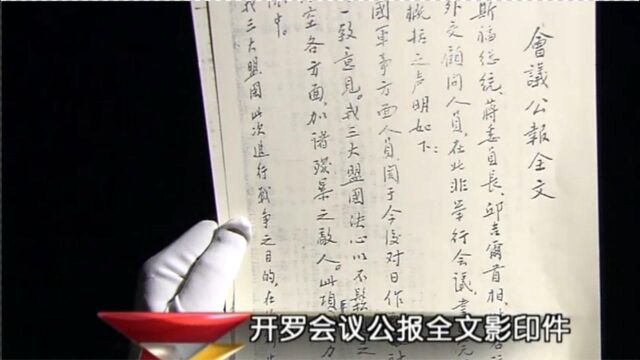 會議公報全文
斯福總統、蔣委員長、邱吉爾首相、
外交顧問人員,在北非舉行會議,業
概括之声明如下:
國軍事方面人員関于今後对日作
一致意見。我三大盟國決心以不鬆
空各方面,加諸殘暴之敵人。此項
中。
我三大盟國此次進行戰争之目的,在
开罗会议公报全文影印件